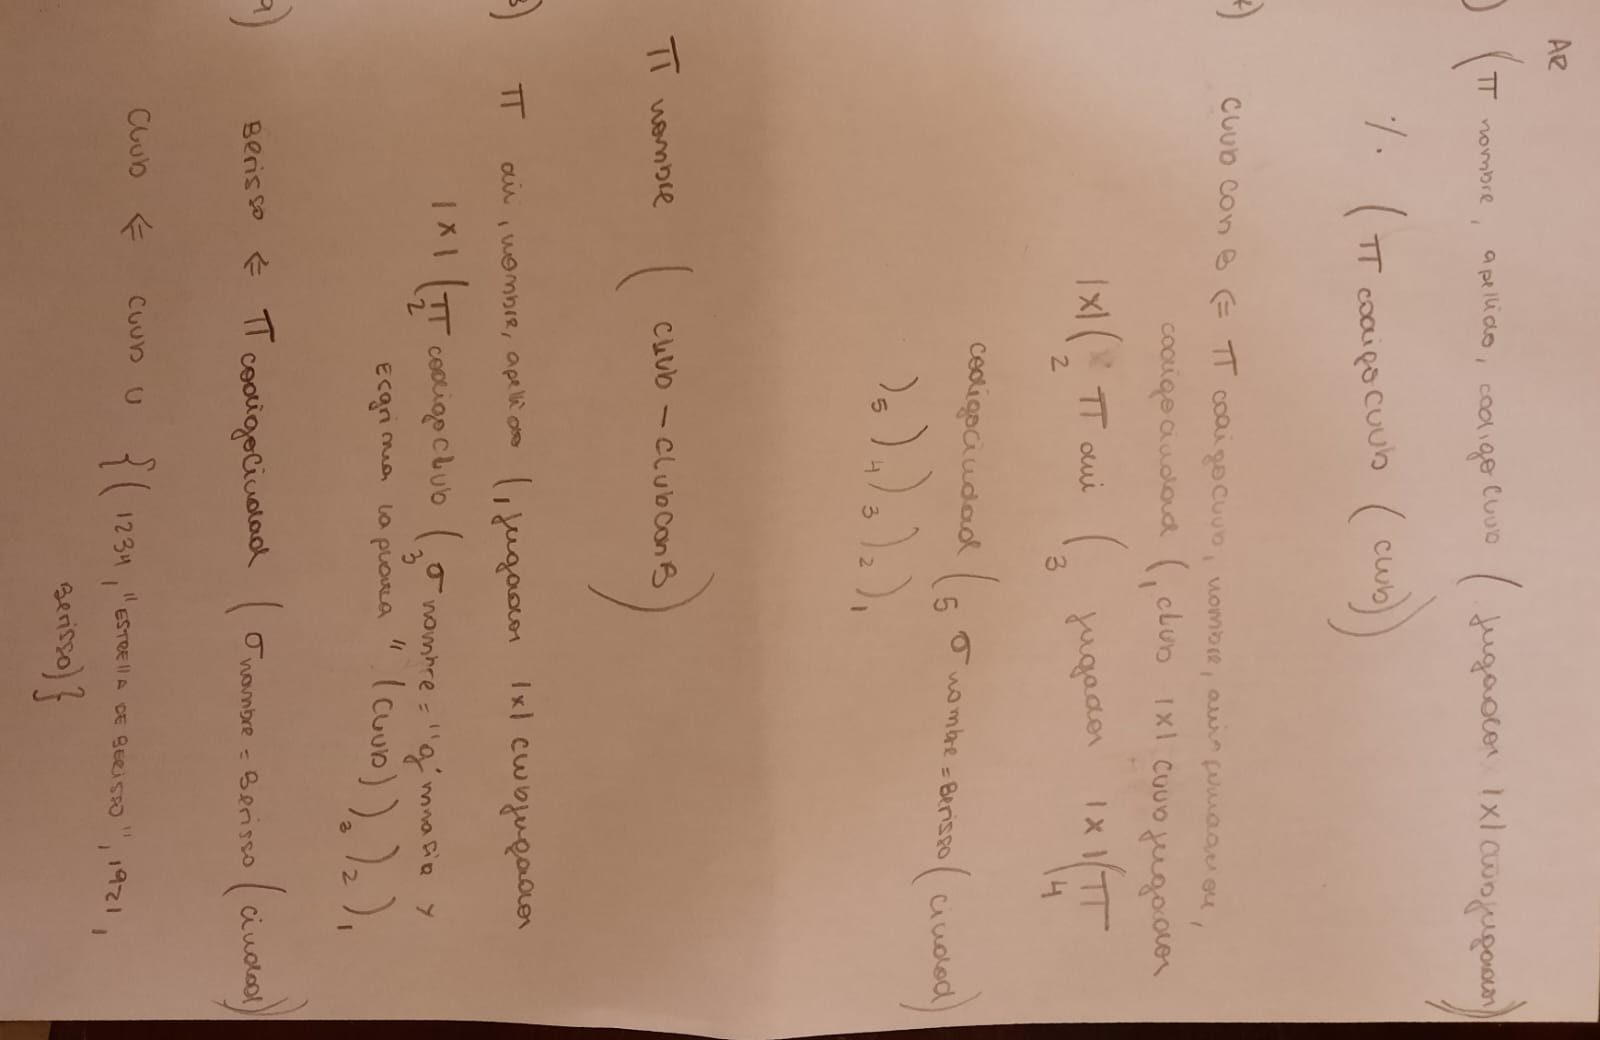 AR
) (π nombre, apellido, codigoclub ( jugador |x| clubjugador))
% (π codigoclub (club))
7) club con B ⇐ π codigoclub, nombre, añofundacion,
codigociudad (1 club |x| clubjugador
|x| (2 π dni (3 jugador |x| (4 π
codigociudad (5 σ nombre = Berisso (ciudad)
)5 )4 )3 )2 )1
π nombre ( club - clubconB )
8) π dni, nombre, apellido (1 jugador |x| clubjugador
|x| (2 π codigoclub (3 σ nombre = "gimnasia y
esgrima la plata" (club) )3 )2 )1
9) Berisso ⇐ π codigociudad ( σ nombre = Berisso (ciudad))
club ⇐ club ∪ {( 1234, "ESTRELLA DE BERISSO", 1921,
Berisso)}